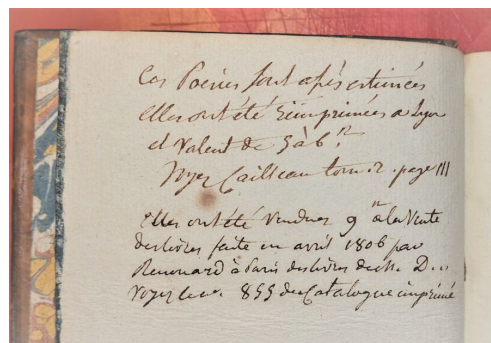 Ces Poesies sont assés estimées
elles ont été Réimprimées a Lyon
et Valent de 5 à 6.ʰ
Voyez Cailleau tom. 2. page 111
elles ont été Vendues 9ʰ à la Vente
des livres faite en avril 1806 par
Renouard à Paris des livres de M. D...
Voyez le n. 855 du Catalogue imprimé